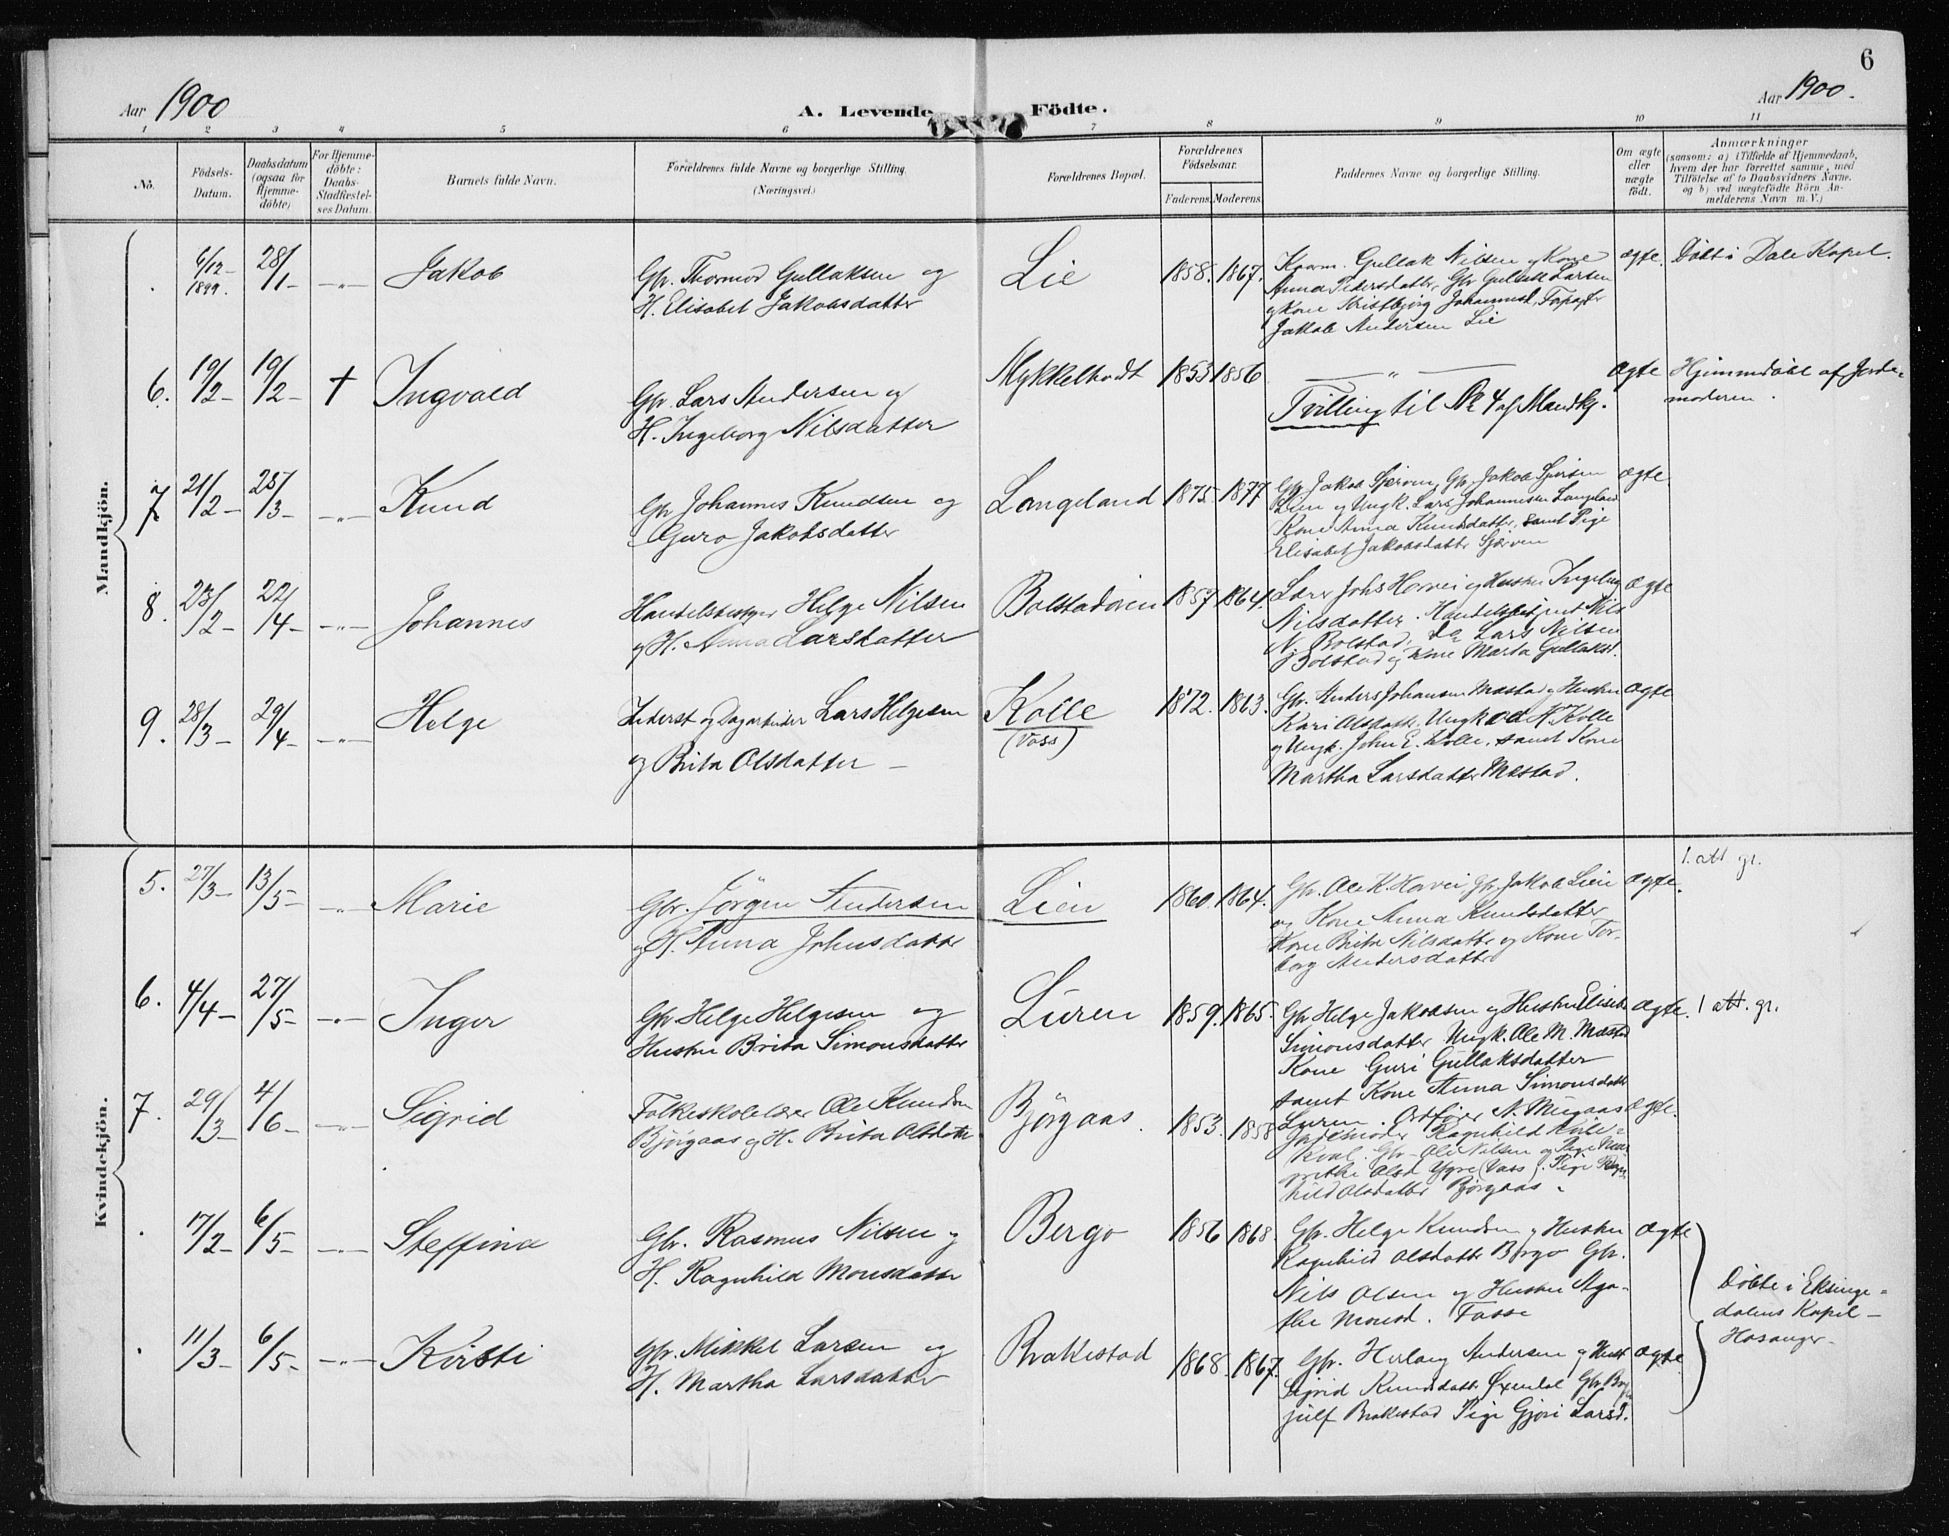 6
Aar 1900
A. Levende Födte.
Aar 1900.
1 2 3 4 5 6 7 8 9 10 11
No.
Födsels-
Datum.
Daabsdatum
(ogsaa for
Hjemme-
döbte)
For Hjemme-
döbte:
Daabs-
Stadfæstel-
ses Datum.
Barnets fulde Navn.
Forældrenes fulde Navne og borgerlige Stilling.
(Næringsvei.)
Forældrenes Bopæl.
Forældrenes
Födselsaar.
Faderens. Moderens.
Faddernes Navne og borgerlige Stilling.
Om ægte
eller
uægte
födt.
Anmærkninger
(saasom: a) i Tilfælde af Hjemmedaab,
hvem der har forrettet samme, med
Tilföielse af to Daabsvidners Navne.
og b) ved uægtefödte Börn An-
melderens Navn m. V.)
Mandkjön.
6/12 1899. 28/1 Jakob
Gbr. Thormod Gullaksen og
H. Elisabet Jakobsdatter
Lie 1858. 1867.
Gullak Nilsen og Kone
Anna Pedersdatter, Gbr Gullak Larsen
og Kone Kristbjørg Johannesd.
Jakob Andersen Lie
ægte. Døbt i Dale Kapel.
6. 19/2 19/2 † Ingvald
Gbr. Lars Andersen og
H. Ingeborg Nilsdatter
Mykkeltvedt 1853 1856
Tvilling til No 4 af Mandkj.
ægte Hjemmedøbt af Jorde-
moderen.
7 21/2 25/3 Knud
Gbr Johannes Knudsen og
Guro Jakobsdatter
Langeland 1875 1877
Gbr Jakob Sjørven, Gbr Jakob Sjursen
Lien og Ungk. Lars Johannesen Langeland
Kone Anna Knudsdatter, samt Pige
Elisabet Jakobsdatter Sjørven
ægte
8. 23/2 22/4 Johannes
Helge Nilsen
og H. Anna Larsdatter
Bolstadøren 1857 1864.
Lærer Johs Horvei og Hustru Ingeborg
Nilsdatter. Nils
N. Bolstad, do Lars Nilsen
Bolstad og Kone Marta Gullaksd.
ægte
9. 28/3 29/4 Helge
Inderst og Dagarbeider Lars Helgesen
og Brita Olsdatter
Kolle
(Voss)
1872. 1863.
Gbr. Anders Johansen Mæstad og Hustru
Kari Olsdatter, Ungk N. Kolle
og Ungk. John E. Kolle, samt Kone
Martha Larsdatter Mæstad.
ægte
Kvindekjön.
5. 27/3 13/5 Marie
Gbr. Jørgen Andersen
og H. Anna Johnsdatter
Lien 1860. 1864.
Gbr. Ole K. Horvei, Gbr. Jakob Lien
og Kone Anna Knudsdatter
Kone Brita Nilsdatter og Kone Tor-
borg Andersdatter
ægte. 1. att gr.
6. 4/4 27/5 Inger
Gbr Helge Helgesen og
Hustru Brita Simonsdatter
Luren 1859. 1865.
Gbr Helge Jakobsen og Hustru Elisabet
Simonsdatter Ungk. Ole M. Mæstad
Kone Guri Gullaksdatter
samt Kone Anna Simonsdatter
Luren.
ægte. 1 att. gr.
7. 29/3 4/6 Sigrid
Folkeskolelærer Ole Knudsen
Bjørgaas og H. Brita Olsdatter
Bjørgaas. 1853. 1858
Jordemoder Ragnhild
Gbr Ole Nilsen og Pige
Olsd (Voss). Pige Ragn-
hild Olsdatter Bjørgaas.
ægte.
17/2 6/5 Steffina
Gbr. Rasmus Nilsen og
H. Ragnhild Monsdatter
Bergo 1856 1868.
Gbr. Helge Knudsen og Hustru
Ragnhild Olsdatter Bergo Gbr.
Nils Olsen og Hustru Aga-
the Monsd. Fosse
ægte
11/3 6/5 Kirsti
Gbr. Mikkel Larsen og
H. Martha Larsdatter
Brakestad 1868. 1867.
Gbr. Herlaug Andersen og Hust
Sigrid Knudsdatter
Brakestad Pige Gjøri Larsd.
ægte
Døbte i Eksinge-
dalens Kapel
Hosanger